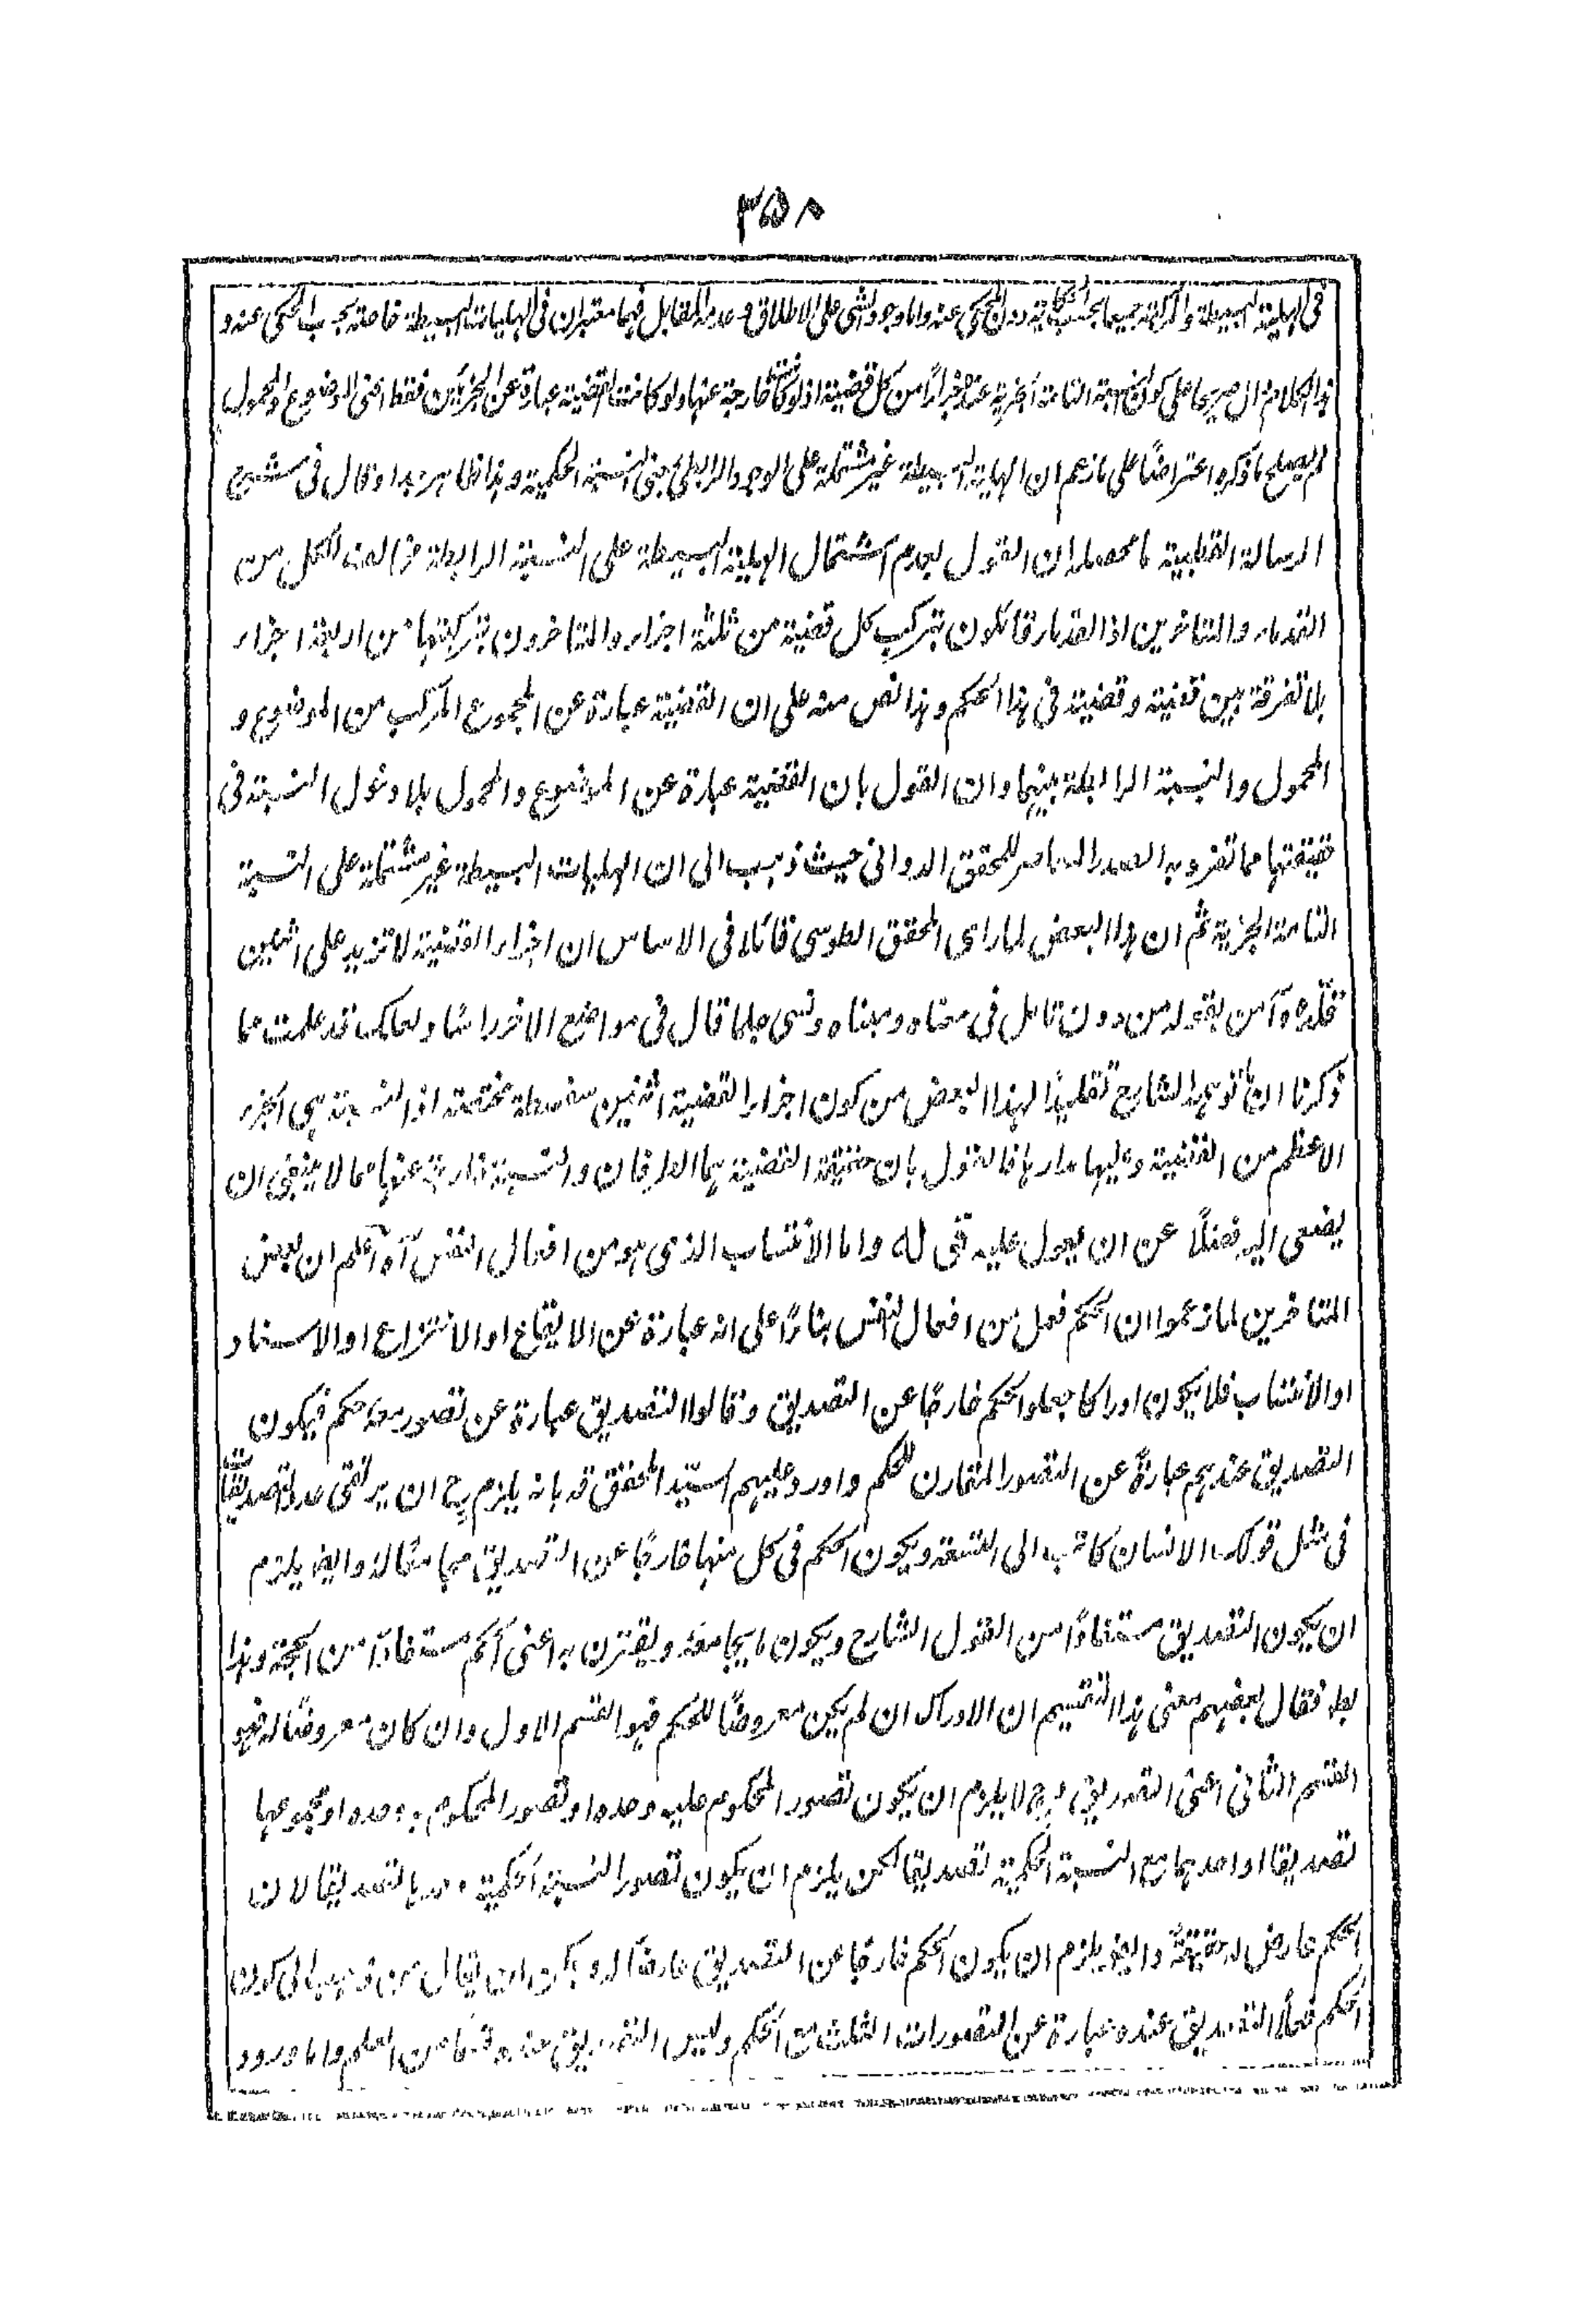 ۳۵۸
فى الهلية البسيطة والمركبة جميعا بحسب الحكاية دون المحكى عنه واما وجود الشى على الاطلاق و المقابل فهما معتبران فى الهليات البسيطة خاصة بحسب المحكى عنه و
هذا الكلام دال صريحا على كون النسبة التامة الخبرية عنده جزءًا من كل قضية اذ لو كانت خارجة عنها ولو كانت القضية عبارة عن الجزئين فقط اعنى الموضوع والمحمول
لم يصلح ما ذكره اعتراضًا على ما زعم ان الهلية البسيطة غير مشتملة على الوجود الرابطى يعنى النسبة الحكمية وهذا ظاهر جدا وقال فى شرح
الرسالة القطبية ما محصله ان القول بعدم اشتمال الهلية البسيطة على النسبة الرابطة مخالفة لكل من
القدماء والمتاخرين اذ القدماء قائلون بتركيب كل قضية من ثلثة اجزاء والمتاخرون بتركيبها من اربعة اجزاء
بلا تفرقة بين قضية وقضية فى هذا الحكم وهذا نص منه على ان القضية عبارة عن المجموع المركب من الموضوع و
المحمول والنسبة الرابطة بينهما وان القول بان القضية عبارة عن الموضوع والمحمول بلا دخول النسبة فى
حقيقتها مما تفرد به الصدر المعاصر للمحقق الدوانى حيث ذهب الى ان الهليات البسيطة غير مشتملة على النسبة
التامة الخبرية ثم ان هذا البعض لما راى المحقق الطوسى قائلا فى الاساس ان اجزاء القضية لا تزيد على اثنين
قلده وآمن بقوله من دون تامل فى معناه ومبناه ونسى جلما قال فى مواضع الاخر راسًا ولعلك قد علمت مما
ذكرنا ان ما توهمه الشارح تقليدًا لهذا البعض من كون اجزاء القضية اثنين سفسطة محضة اذ النسبة هى الجزء
الاعظم من القضية وعليها مدارها فالقول بان حقيقة القضية هما الطرفان والنسبة خارجة عنها مما لا ينبغى ان
يصغى اليه فضلًا عن ان يعول عليه قى له واما الانتساب الذى هو من افعال النفس آه اعلم ان بعض
المتاخرين لما زعموا ان الحكم فعل من افعال النفس بناءً على انه عبارة عن الايقاع او الانتزاع او الاسناد
او الانتساب فلا يكون ادراكا جعلوا الحكم خارجًا عن التصديق وقالوا التصديق عبارة عن تصور معه حكم فيكون
التصديق عندهم عبارةً عن التصور المقارن للحكم واورد عليهم السيد المحقق قد بانه يلزم ح ان يرتقى عدد التصديقات
فى مثل قولك الانسان كاتب الى التسعة ويكون الحكم فى كل منها خارجًا عن التصديق مجامعًا له وايضا يلزم
ان يكون التصديق مستفادًا من القول الشارح ويكون ما يجامعه ويقترن به اعنى الحكم مستفادًا من الحجة وهذا
بط فقال بعضهم معنى هذا التقسيم ان الادراك ان لم يكن معروضًا للحكم فهو القسم الاول وان كان معروضًا له فهو
القسم الثانى اعنى التصديق وح لا يلزم ان يكون تصور المحكوم عليه وحده او تصور المحكوم به وحده او مجموعهما
تصديقا او احدهما مع النسبة الحكمية تصديقا لكن يلزم ان يكون تصور النسبة الحكمية وحدها تصديقا لان
الحكم عارض له حقيقةً وايضا يلزم ان يكون الحكم خارجًا عن التصديق عارضًا له ويمكن ان يقال من ذهب الى كون
الحكم فعلًا التصديق عنده عبارة عن التصورات الثلث مع الحكم وليس التصديق عنده قسمًا من العلم واما ورود